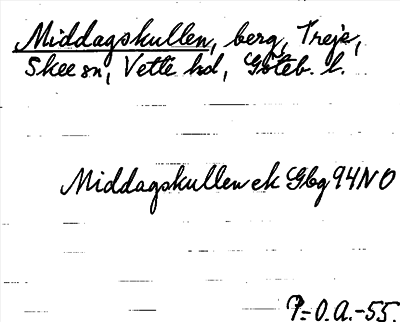 Middagskullen, berg, Treje,
Skee sn, Vette hd, Göteb. l.
Middagskullen ek Gbg 94 NO
P-O.A.-55.